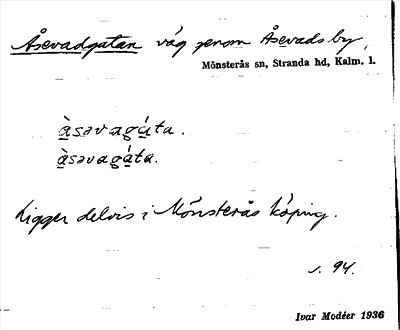 Åsevadgatan väg genom Åsevads by,
Mönsterås sn, Stranda hd, Kalm. l.
ὰsəvagáta.
ὰsəvagáta.
Ligger delvis i Mönsterås köping.
s. 94.
Ivar Modéer 1936